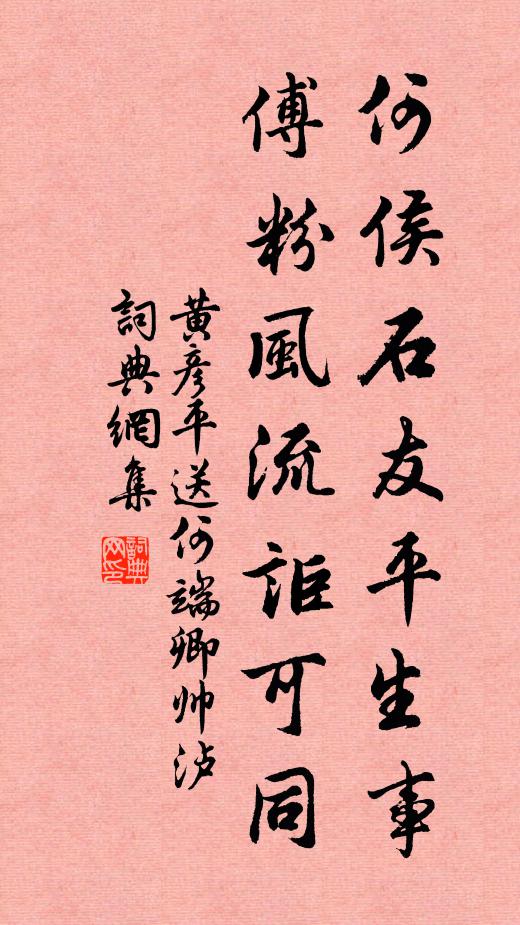 何侯石友平生事
傅粉風流詎可同
黄彦平送何端卿帅泸
詞典網集
詞典网印